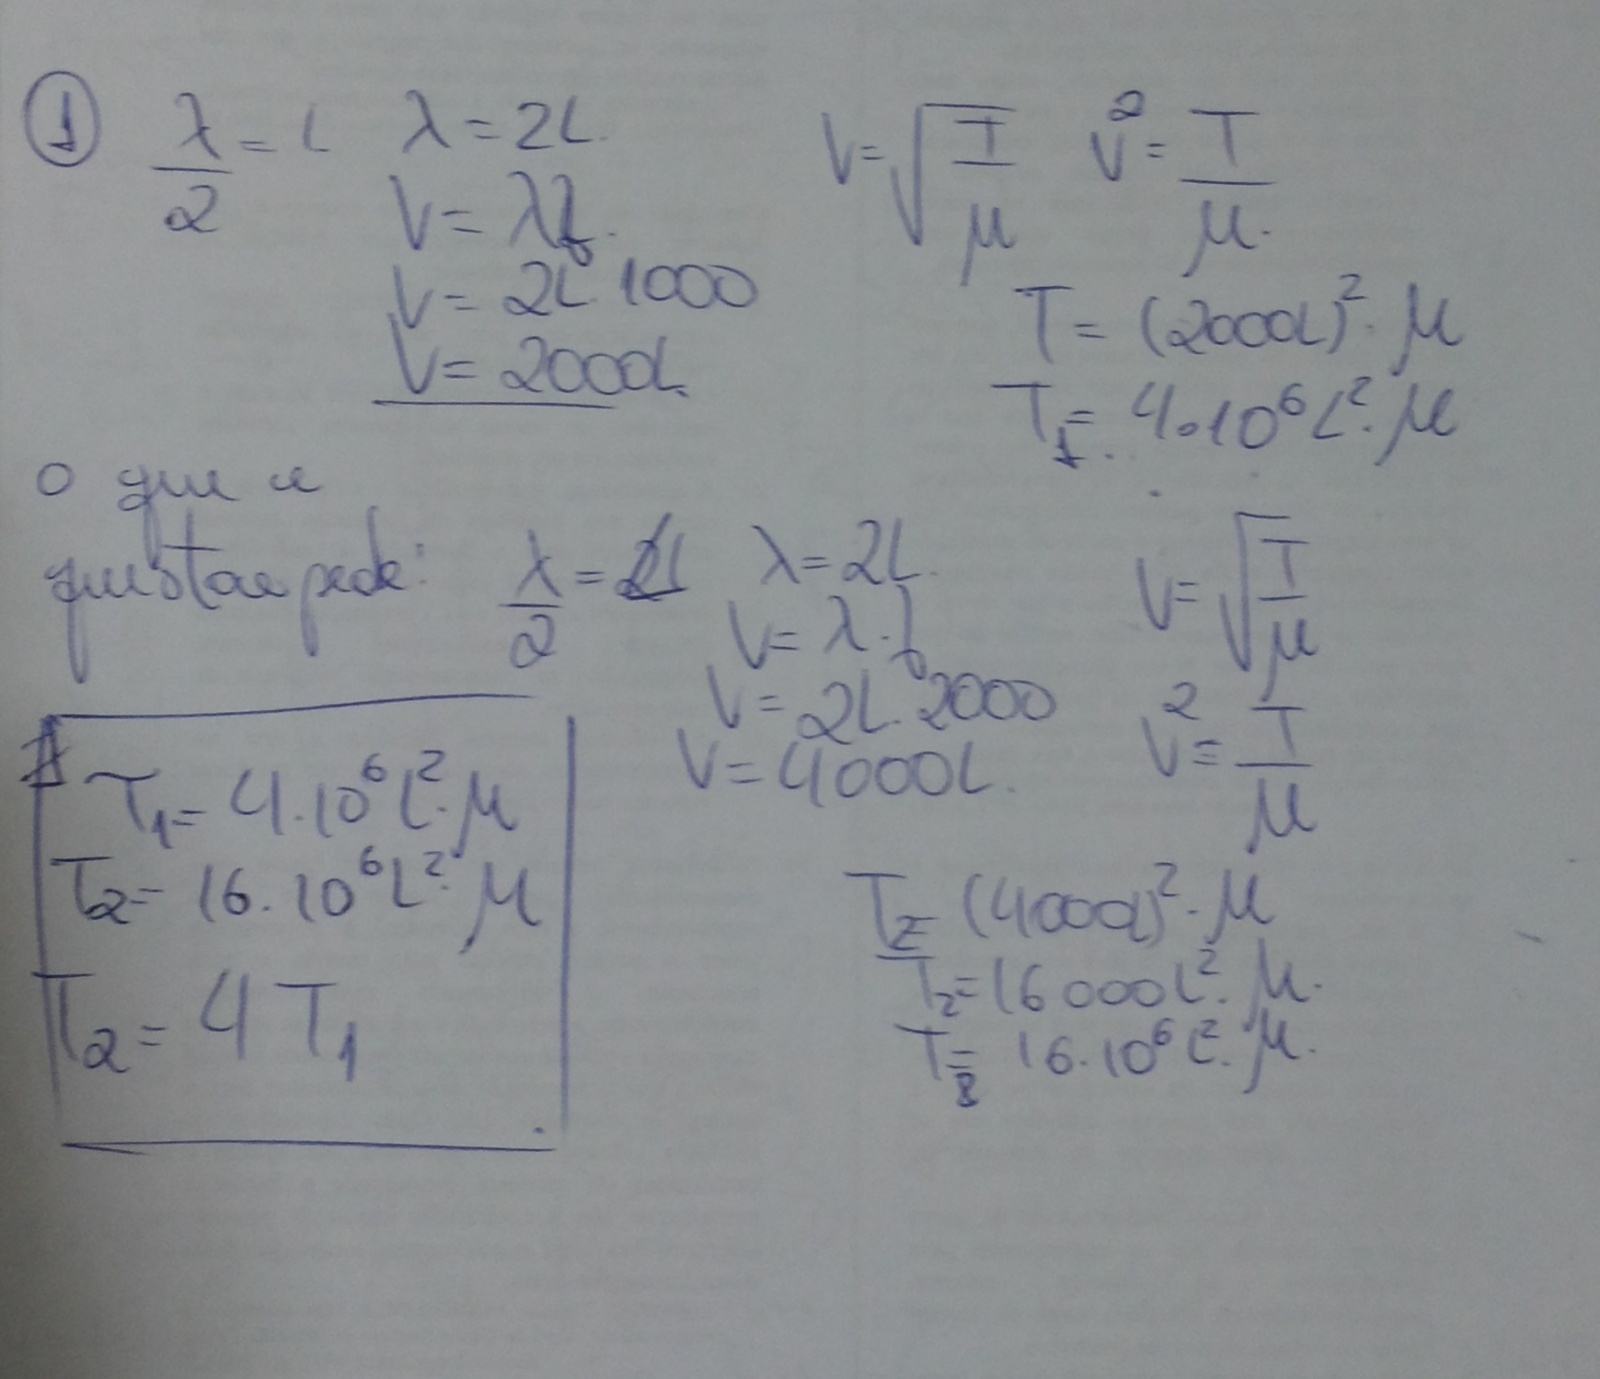 1
λ/2 = L
λ = 2L.
V = λf.
V = 2L.1000
V = 2000L.
V = √(T/μ)
V² = T/μ.
T = (2000L)².μ
T1 = 4.10⁶L².μ
o que a
questao pede:
λ/2 = L
λ = 2L.
V = λ.f
V = 2L.2000
V = 4000L.
V = √(T/μ)
V² = T/μ
T2 = (4000L)².μ
T2 = 16000L².μ.
T2 = 16.10⁶L².μ.
T1 = 4.10⁶L².μ
T2 = 16.10⁶L².μ
T2 = 4T1